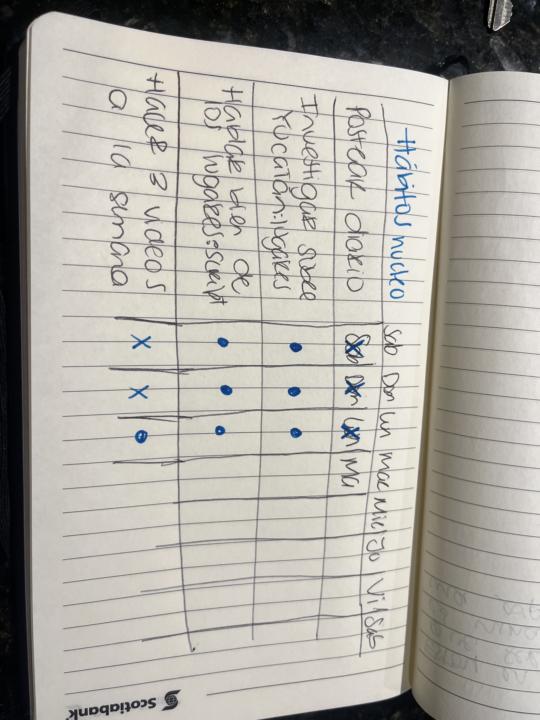 Hábitos nucleo
Sab Dom Lun mac Mie Ju Vi Sab
Postear diario
Sab Dom Lun Ma
Investigar sobre
Yucatan: lugares
Hablar bien de
los lugares: script
Hacer 3 videos
a la semana
X X
Scotiabank